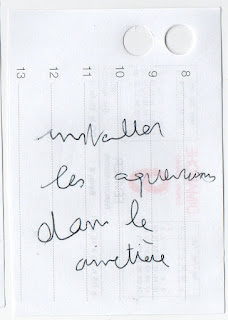 8
9
10
11
12
13
installer
les aquariums
dans le
cimetière